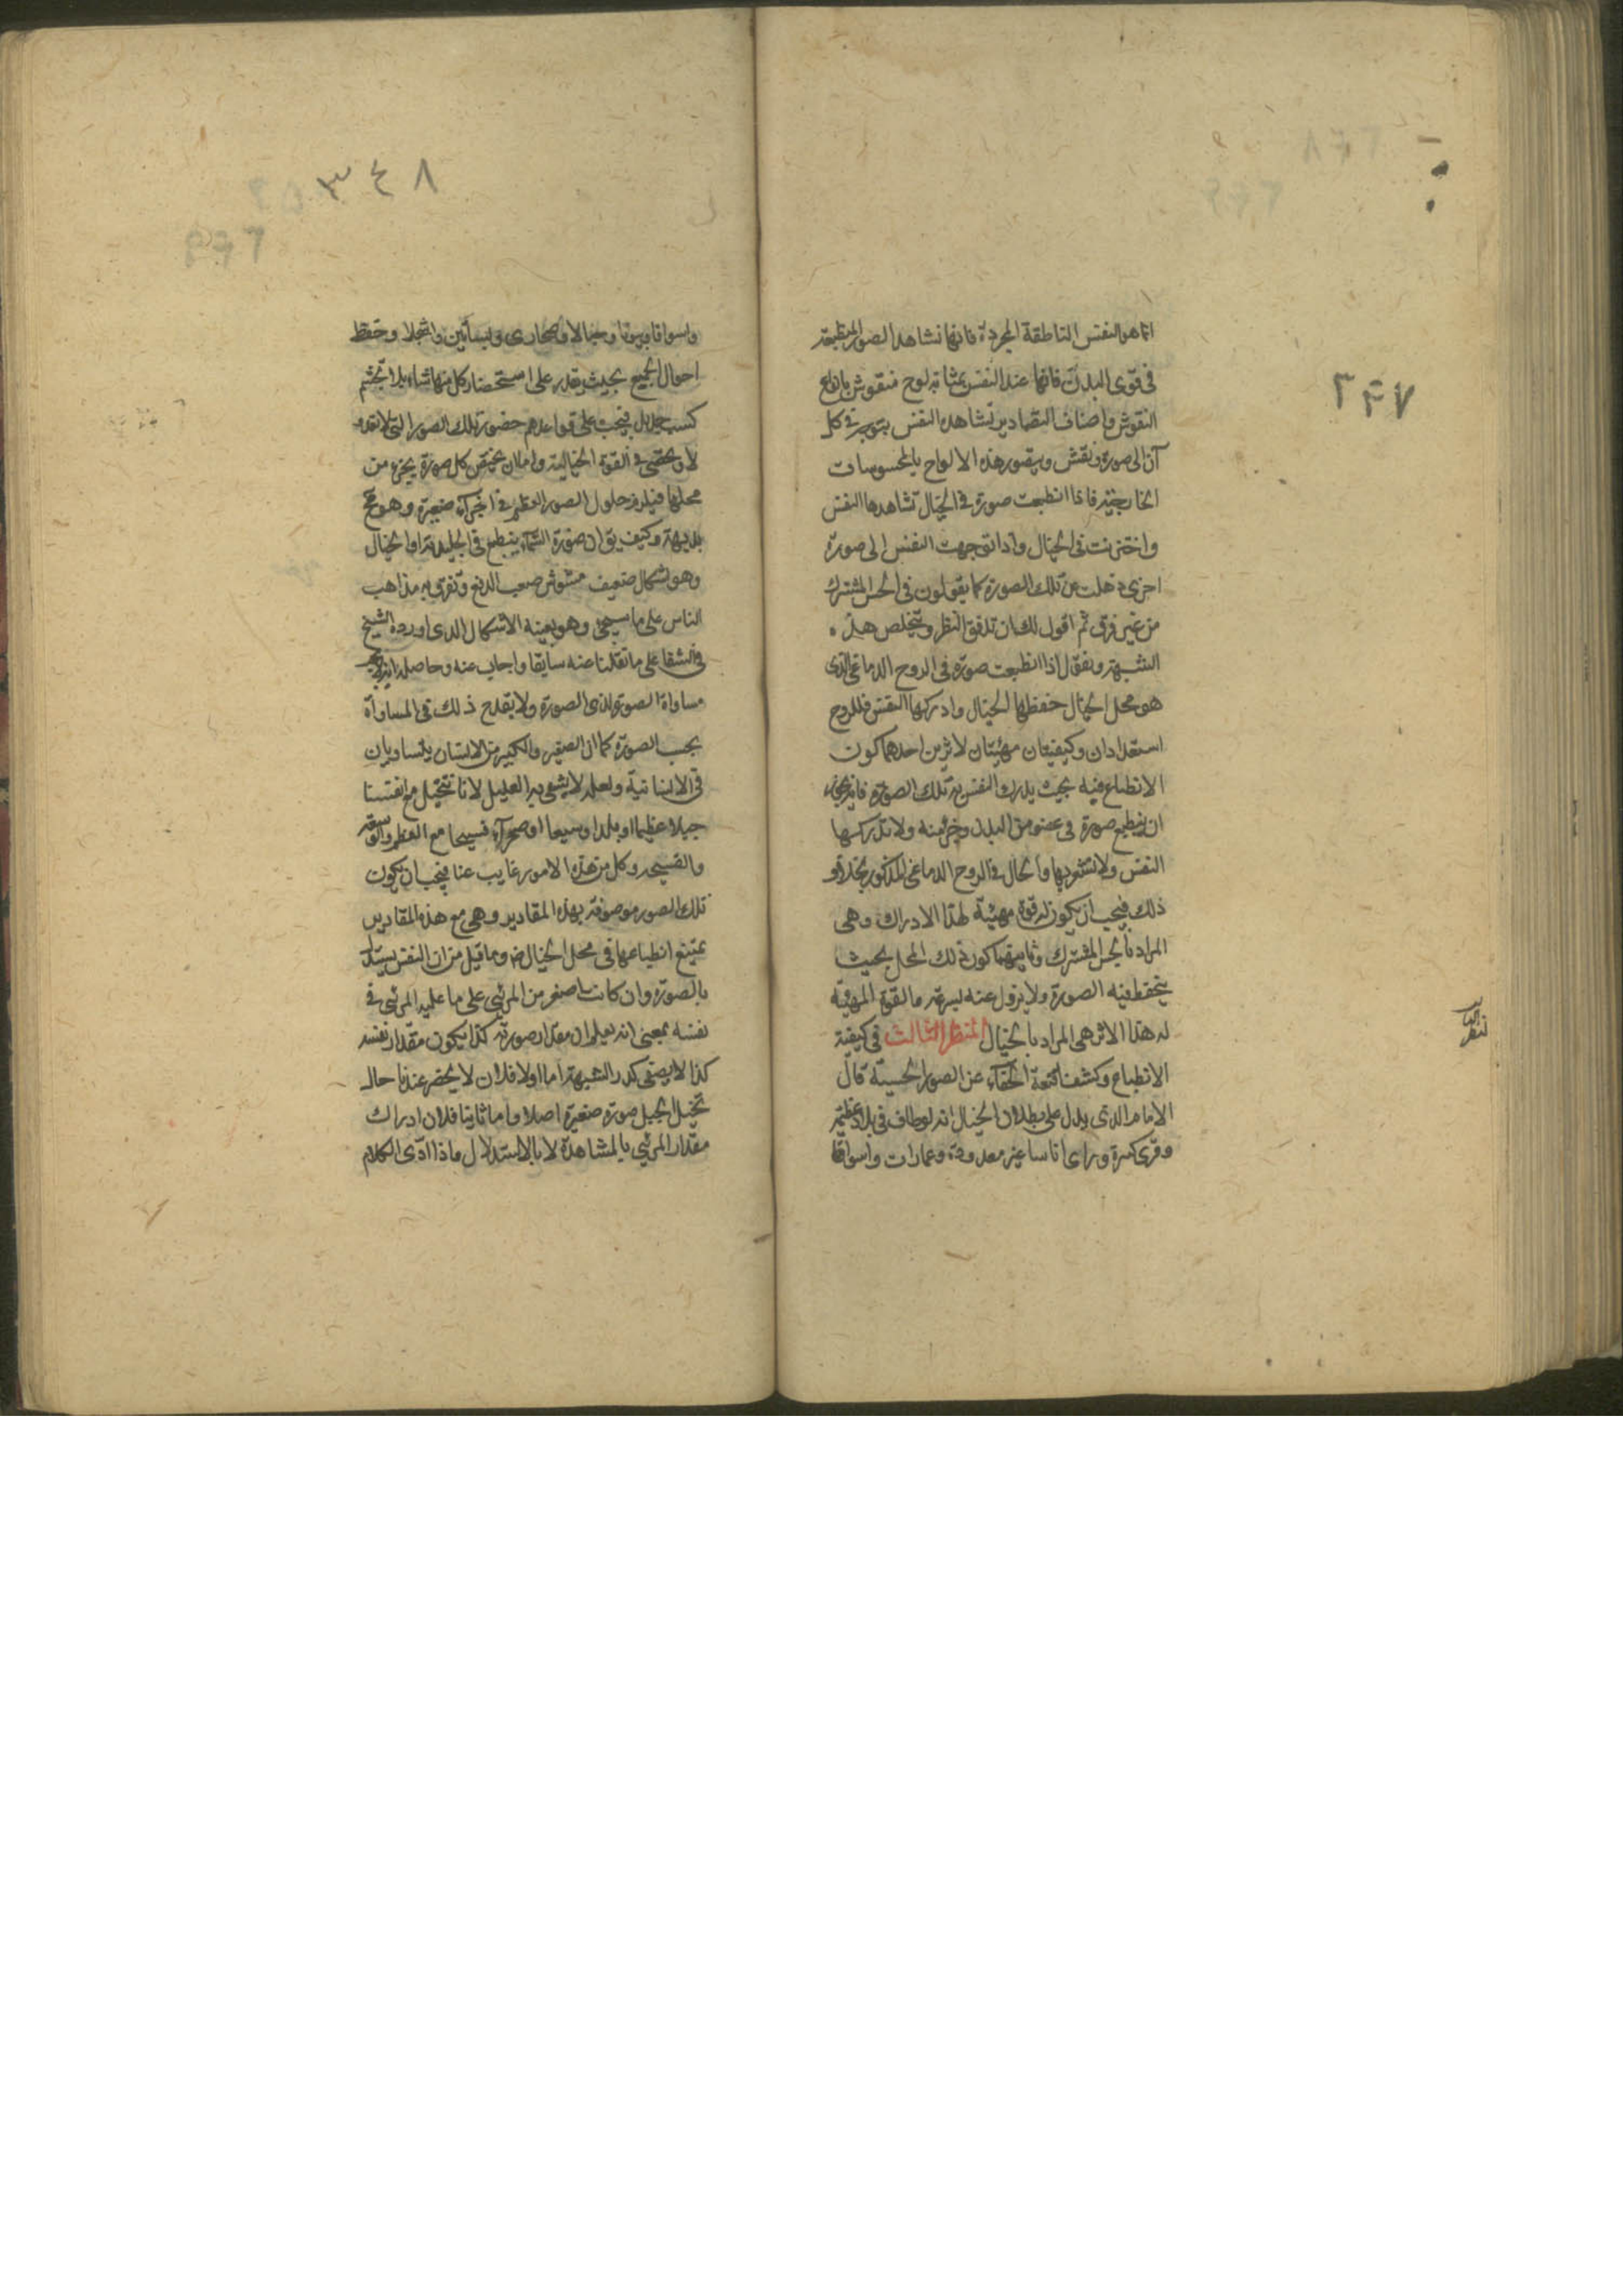 ٣٤٧
انما هو النفس الناطقة المجردة فانها تشاهد الصور المنطبعة
فى قوى البدن فانها عند النفس بمثابة لوح منقوش بانواع
النقوش واصناف التصاوير تشاهده النفس بتوجه فى كل
آن الى صورة ونقش ويتصور هذه الالواح بالمحسوسات
الخارجية فاذا انطبعت صورة فى الخيال تشاهدها النفس
واختزنت فى الخيال واذا توجهت النفس الى صورة
اخرى ذهلت عن تلك الصورة كما يقولون فى الحس المشترك
من غير فرق ثم اقول لك ان تدقق النظر وتتخلص هذه
الشبهة ونقول اذا انطبعت صورة فى الروح الدماغى الذى
هو محل الخيال حفظها الخيال وادركها النفس فللروح
استعدادان وكيفيتان مهيئتان لاثرين احدهما كون
الانطباع فيه بحيث يدرك النفس به تلك الصورة فانه يجوز
ان ينطبع صورة فى عضو من البدن وجزء منه ولا تدركها
النفس ولا تشعر بها والحال فى الروح الدماغى المذكور بخلاف
ذلك فيجب ان يكون له قوة مهيئة لهذا الادراك وهى
المراد بالحس المشترك وثانيتهما كون ذلك المحل بحيث
يتحفظ فيه الصورة ولا يزول عنه بسرعة والقوة المهيئة
له هذا الاثر هى المراد بالخيال المنظر الثالث فى كيفية
الانطباع وكشف الخفاء عن الصور الحسية قال
الامام الذى يدل على بطلان الخيال انه لو طاف فى بلاد عظيمة
وقرى كبيرة وراى اناسا غير معدودة وعمارات واسواقا
٣٤٨
واسواقا وبيوتا وجبالا وصحارى وبساتين واشجارا وحفظ
احوال الجميع بحيث يقدر على استحضار كل منها شاء بلا تجشم
كسب جديد فيجب على قواعدهم حضور تلك الصور التى لا تعد
ولا تحصى فى القوة الخيالية واما ان يختص كل صورة بجزء من
محلها فيلزم حلول الصور العظيمة فى اجزاء صغيرة وهو مح
بديهة وكيف يق ان صورة السماء ينطبع فى الجليدية او الخيال
وهو اشكال ضعيف مشوش صعب الدفع وتفرق به مذاهب
الناس على ما سيجئ وهو بعينه الاشكال الذى اورده الشيخ
فى الشفا على ما نقلنا عنه سابقا واجاب عنه وحاصله انه لا يجب
مساواة الصورة لذى الصورة ولا يقدح ذلك فى المساواة
بحسب الصورة كما ان الصغير والكبير من الانسان يتساويان
فى الانسانية ولعله لا يشفى به العليل لانا نتخيل مع انفسنا
جبلا عظيما او بلدا وسيعا او صحراء فسيحا مع العظم والوسعة
والفسيحة وكل من هذه الامور غايب عنا فيجب ان يكون
تلك الصور موصوفة بهذه المقادير وهى مع هذه المقادير
يمتنع انطباعها فى محل الخيال وما قيل من ان النفس يستدل
بالصورة وان كانت اصغر من المرئى على ما عليه المرئى فى
نفسه بمعنى انه يعلم ان مقدار صورته كذا يكون مقدار نفسه
كذا لا يصفى كدر الشبهة اما اولا فلان لا يحضر عندنا حال
تخيل الجبل صورة صغيرة اصلا واما ثانيا فلان ادراك
مقدار المرئى بالمشاهدة لا بالاستدلال واذا ادى الكلام